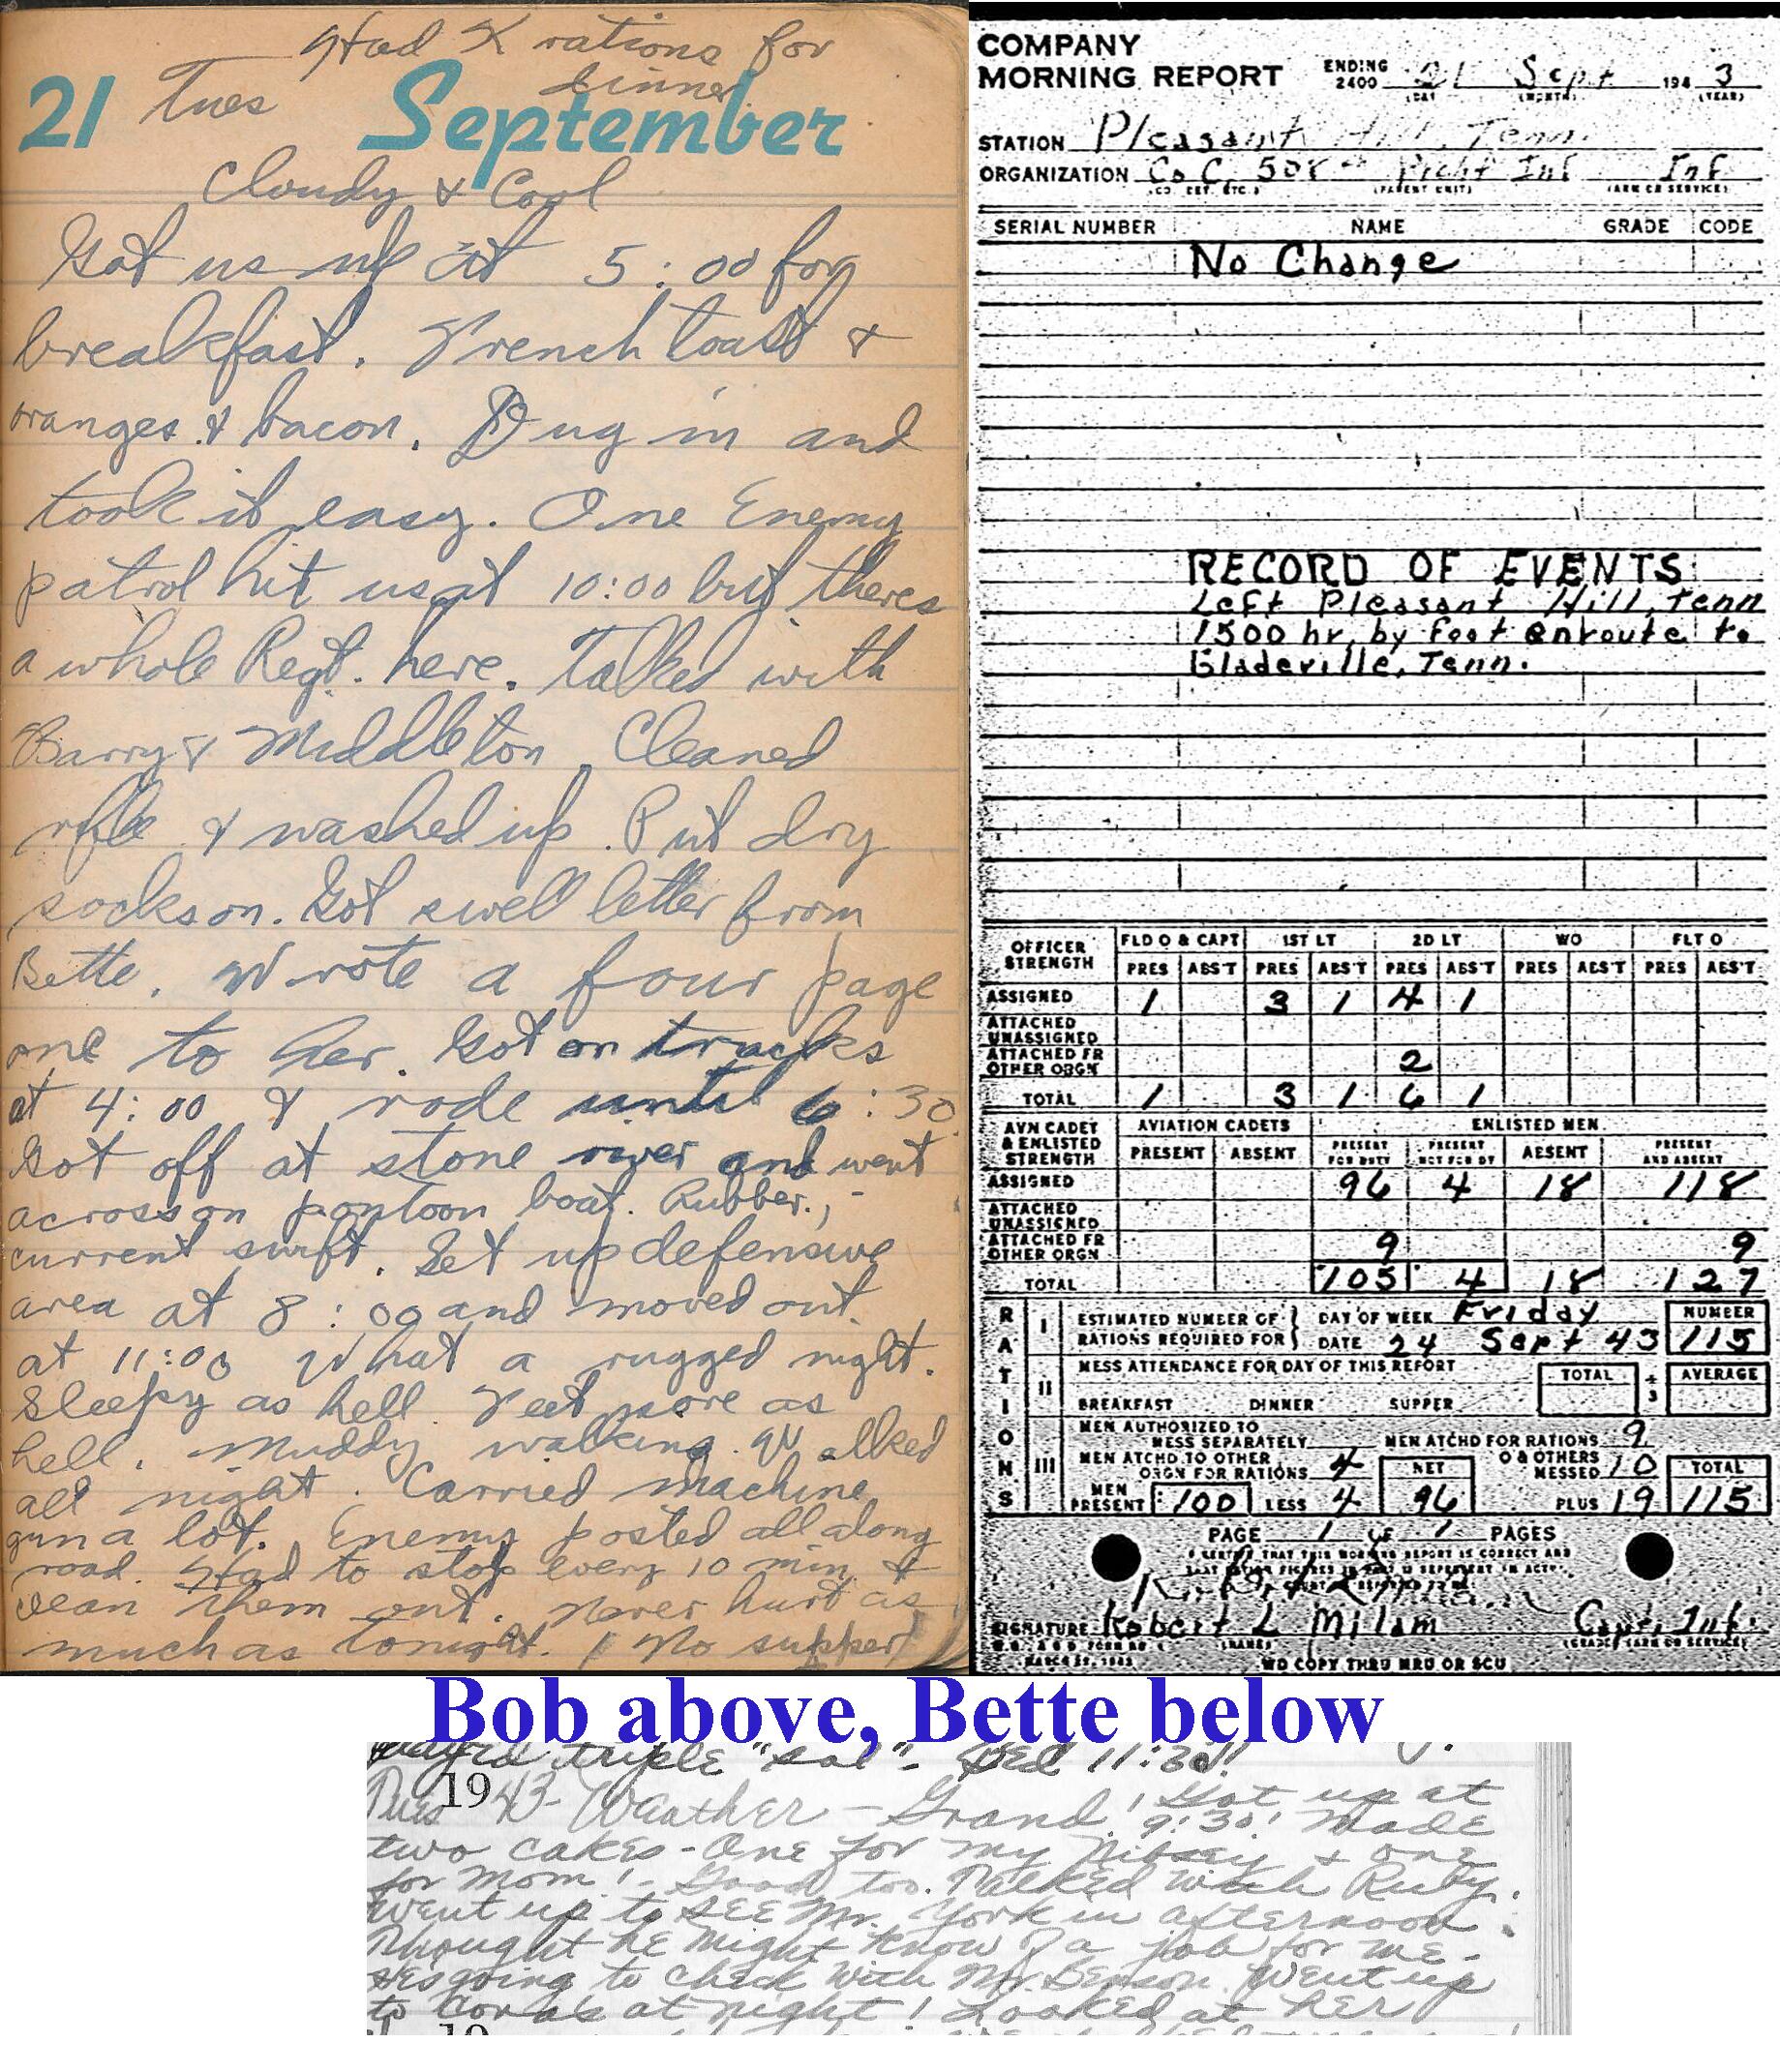 Had K rations for
dinner.
21 Tues September
Cloudy & Cool
Got us up at 5:00 for
breakfast. French toast &
oranges & bacon. Dug in and
took it easy. One Enemy
patrol hit us at 10:00 but theres
a whole Regt. here. Talked with
Barry & Middleton. Cleaned
rifle & washed up. Put dry
socks on. Got swell letter from
Bette. Wrote a four page
one to her. Got on trucks
at 4:00 & rode until 6:30.
Got off at stone river and went
across on pontoon boat. Rubber.,
current swift. Set up defensive
area at 8:00 and moved out.
at 11:00 What a rugged night.
Sleepy as hell. Feet sore as
hell. Muddy walking. Walked
all night. Carried machine
gun a lot. Enemy posted all along
road. Had to stop every 10 min. &
clean them out. Never hurt as
much as tonight. / No supper
COMPANY
MORNING REPORT ENDING 2400 21 Sept 1943
(DAY (MONTH) (YEAR)
STATION Pleasant Hill, Tenn.
ORGANIZATION Co C, 508 Pcht Inf Inf
(CO. DET. ETC.) (PARENT UNIT) (ARM OR SERVICE)
SERIAL NUMBER NAME GRADE CODE
No Change
RECORD OF EVENTS
Left Pleasant Hill, Tenn
1500 hr, by foot enroute to
Gladeville, Tenn.
OFFICER STRENGTH FLD O & CAPT 1ST LT 2D LT WO FLT O
PRES ABS'T PRES ABS'T PRES ABS'T PRES ABS'T PRES ABS'T
ASSIGNED 1 3 1 4 1
ATTACHED UNASSIGNED
ATTACHED FR OTHER ORGN 2
TOTAL 1 3 1 6 1
AVN CADET & ENLISTED STRENGTH AVIATION CADETS ENLISTED MEN
PRESENT ABSENT PRESENT FOR DUTY PRESENT NOT FOR DY ABSENT PRESENT AND ABSENT
ASSIGNED 96 4 18 118
ATTACHED UNASSIGNED
ATTACHED FR OTHER ORGN 9 9
TOTAL 105 4 18 127
RATIONS
I ESTIMATED NUMBER OF RATIONS REQUIRED FOR DAY OF WEEK Friday NUMBER
DATE 24 Sept 43 115
II MESS ATTENDANCE FOR DAY OF THIS REPORT TOTAL ÷ 3 AVERAGE
BREAKFAST DINNER SUPPER
III MEN AUTHORIZED TO MESS SEPARATELY MEN ATCHD FOR RATIONS 9
MEN ATCHD TO OTHER ORGN FOR RATIONS 4 NET O & OTHERS MESSED 10 TOTAL
MEN PRESENT 100 LESS 4 96 PLUS 19 115
PAGE 1 OF 1 PAGES
I CERTIFY THAT THIS MORNING REPORT IS CORRECT AND
SIGNATURE Robert L Milam Capt, Inf.
(NAME) (GRADE (ARM OR SERVICE)
WD COPY THRU MRU OR SCU
Bob above, Bette below
played triple "sol" - Bed 11:30!!
1943
Tues - Weather - Grand! Got up at
9:30! Made
two cakes - One for my Nibsey & one
for Mom! - Good too. Talked with Ruby.
Went up to see Mr. York in afternoon.
Thought he might know of a job for me -
He's going to check with Mr. Benson. Went up
to Cora's at night! Looked at her
19